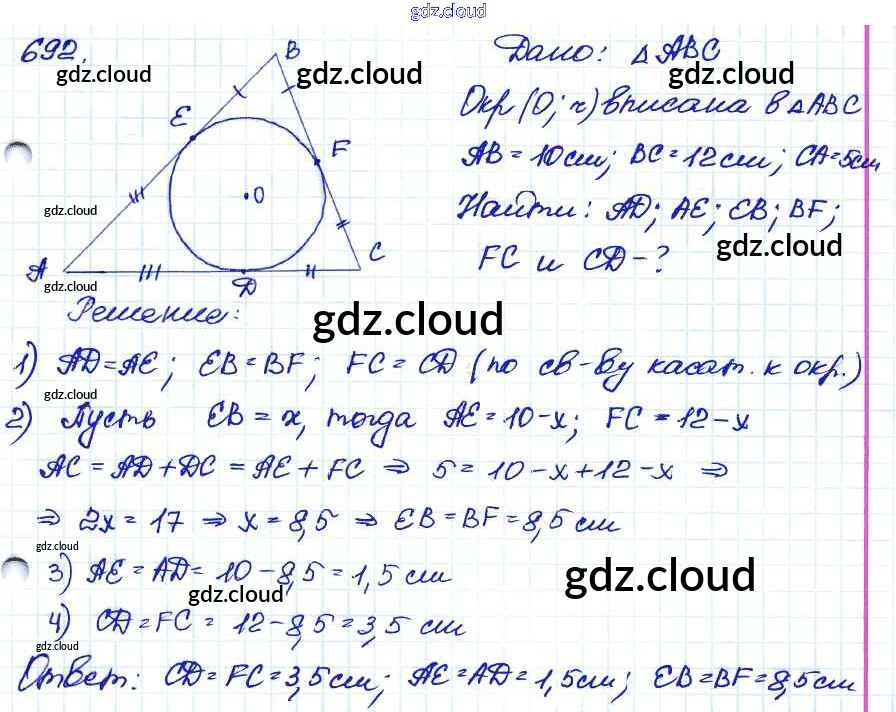 gdz.cloud
692.
B
E
F
O
A
D
C
gdz.cloud
gdz.cloud
gdz.cloud
gdz.cloud
gdz.cloud
Дано: △ABC
Окр(O; r) вписана в △ABC
AB = 10см; BC = 12см; CA = 5см
Найти: AD; AE; EB; BF;
FC и CD - ?
gdz.cloud
Решение:
gdz.cloud
1) AD = AE; EB = BF; FC = CD (по св-ву касат. к окр.)
gdz.cloud
2) Пусть EB = x, тогда AE = 10-x; FC = 12-x
AC = AD + DC = AE + FC ⇒ 5 = 10-x+12-x ⇒
⇒ 2x = 17 ⇒ x = 8,5 ⇒ EB = BF = 8,5 см
gdz.cloud
3) AE = AD = 10 - 8,5 = 1,5 см
gdz.cloud
gdz.cloud
4) CD = FC = 12 - 8,5 = 3,5 см
gdz.cloud
Ответ: CD = FC = 3,5см; AE = AD = 1,5см; EB = BF = 8,5см